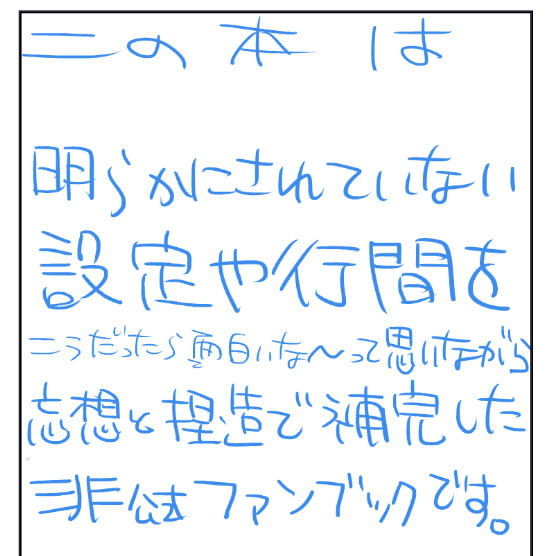 この本は
明らかにされていない
設定や行間を
こうだったら面白いな〜って思いながら
忘想と捏造で補完した
非公式ファンブックです。